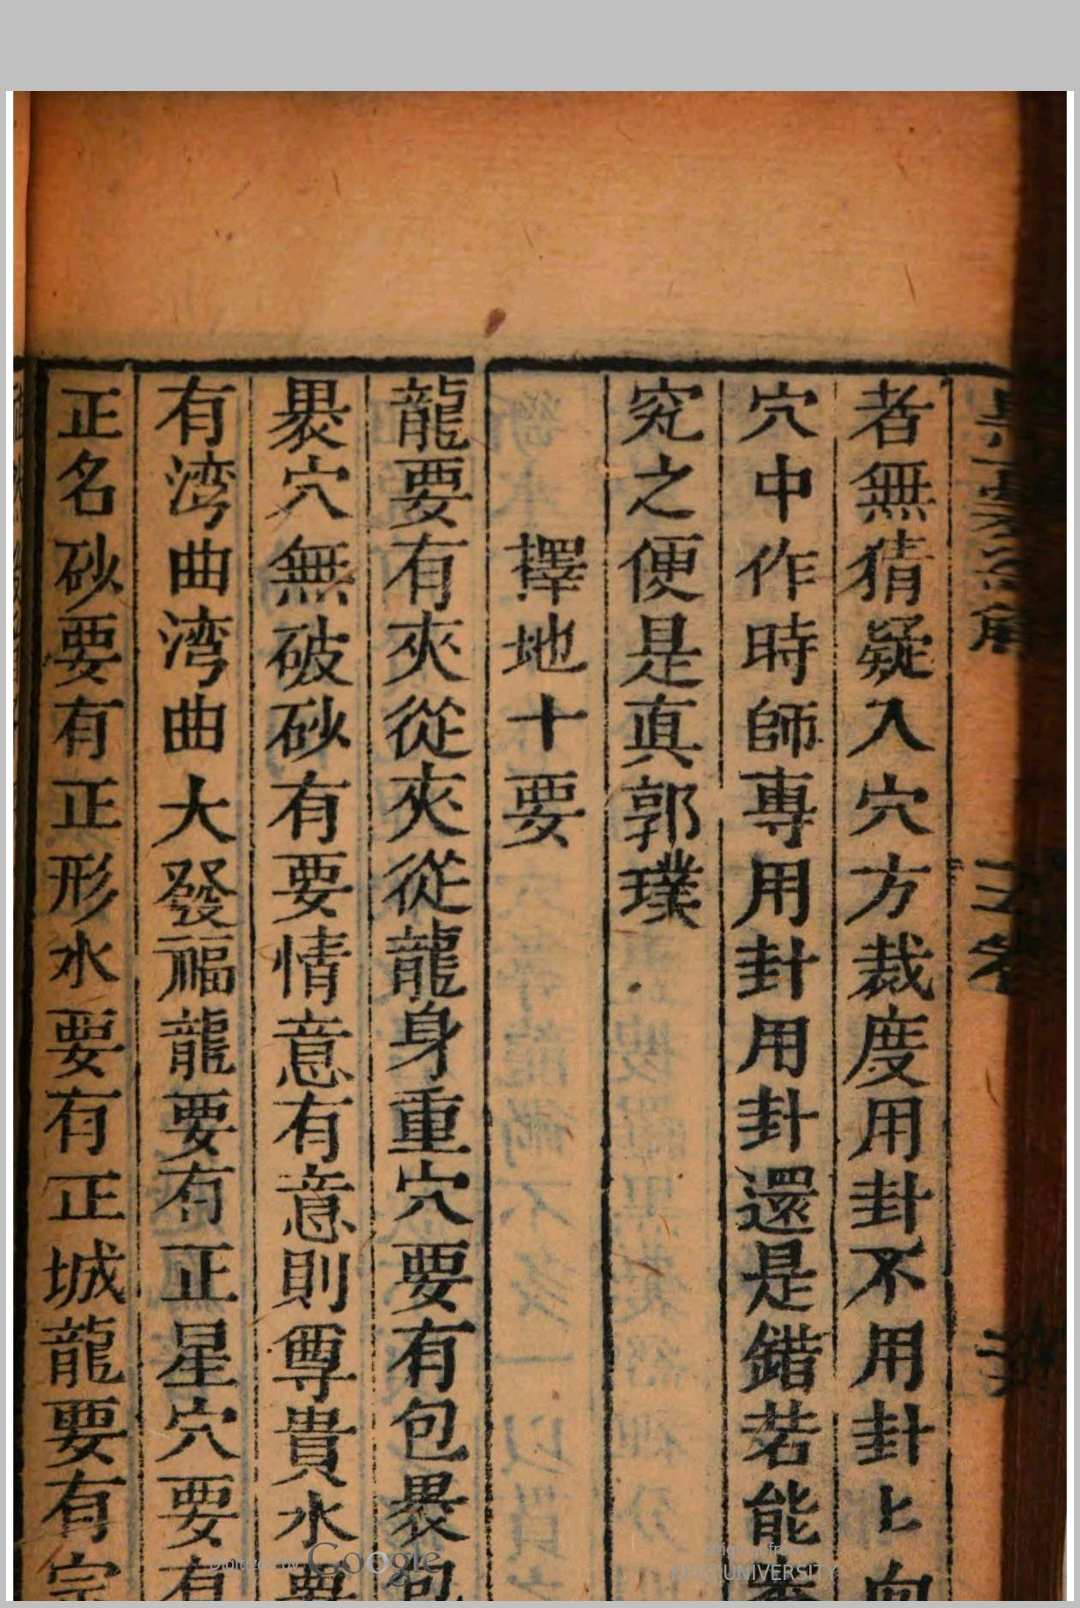 者無猜疑入穴方裁度用卦不用卦上向
穴中作時師專用卦用卦還是錯若能
究之便是真郭璞
擇地十要
龍要有夾從夾從龍身重穴要有包褁包
褁穴無破砂有要情意有意則尊貴水要
有湾曲湾曲大發福龍要有正星穴要有
正名砂要有正形水要有正城龍要有宗
Digitized by Google
UNIVERSITY